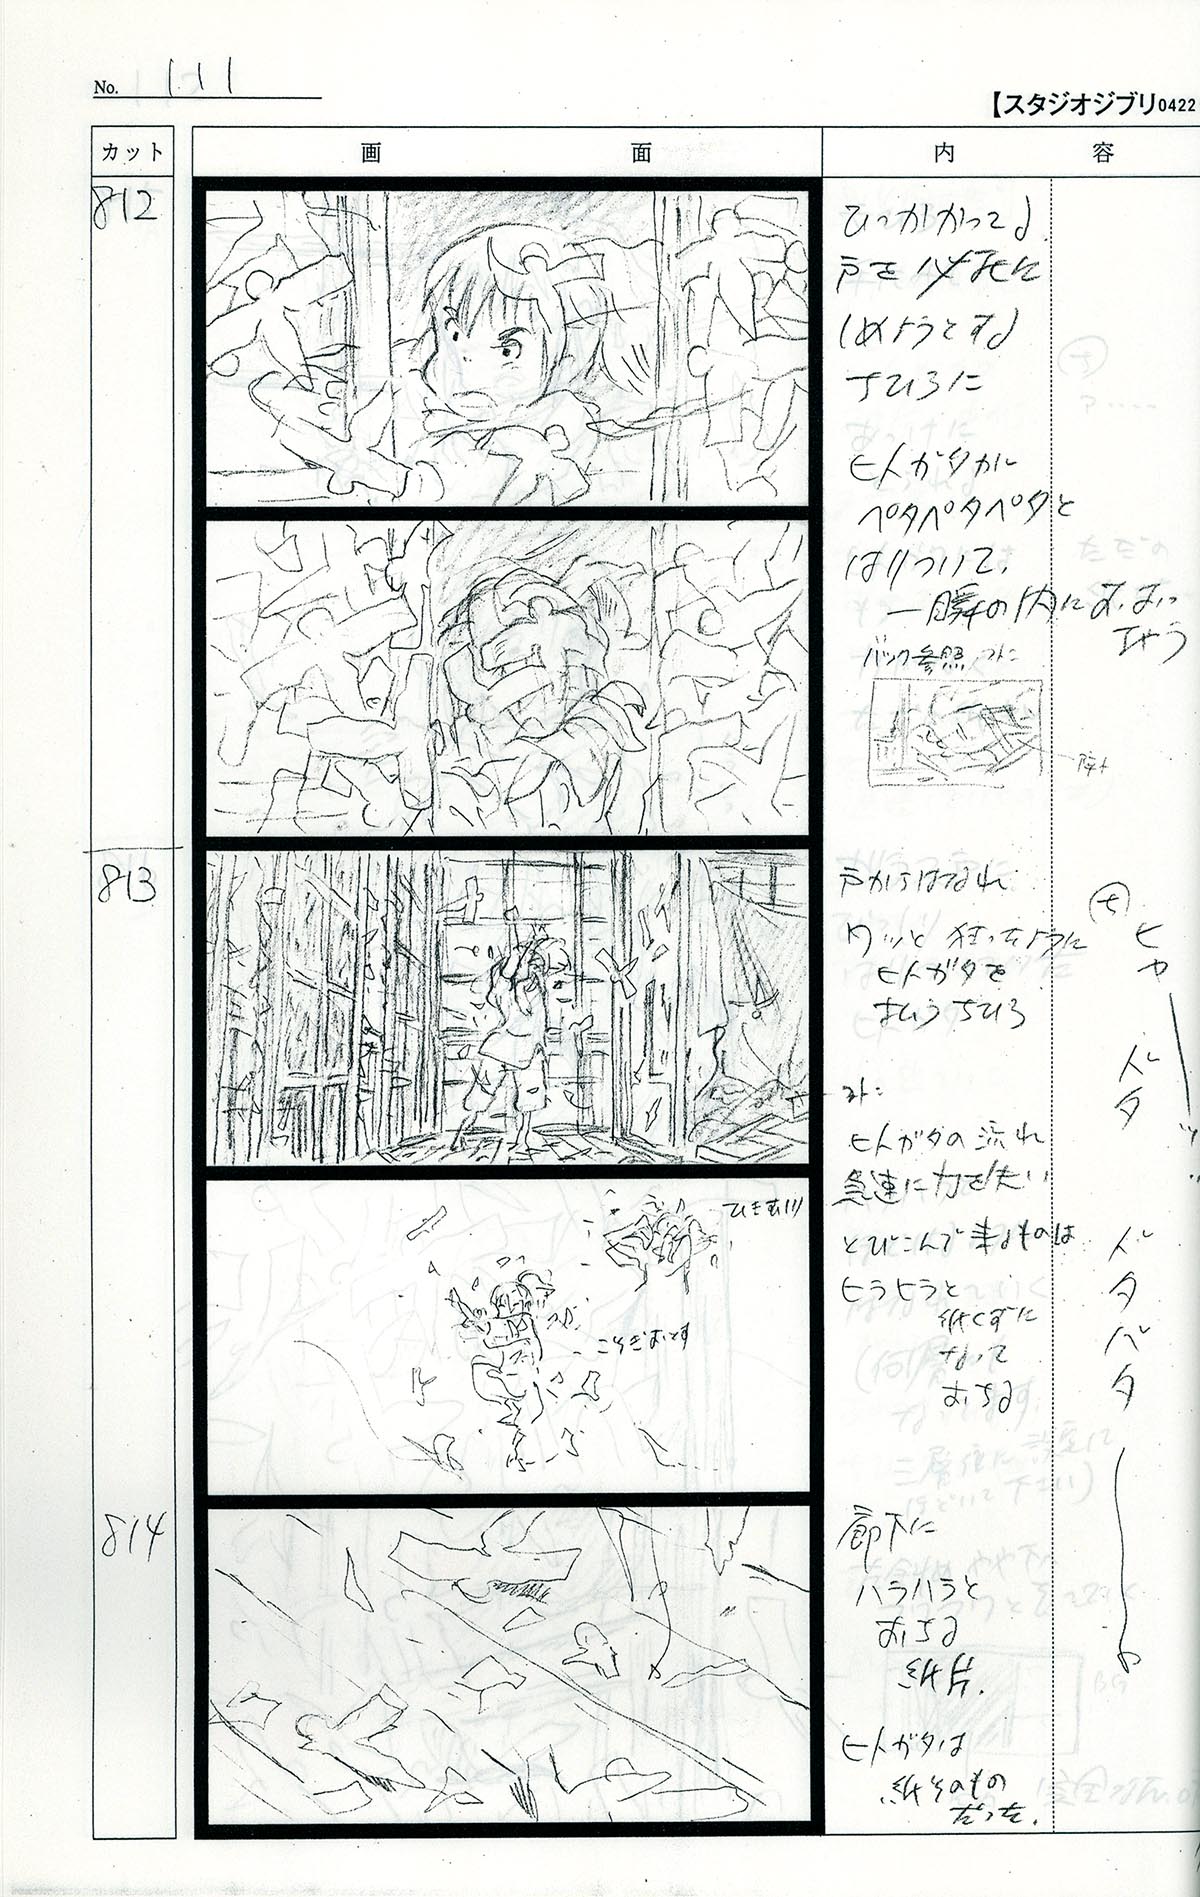 No. 111
【スタジオジブリ0422
カット
画面
内容
812
ひっかかってる
戸を必死に
しめようとする
ちひろに
ヒトガタが
ペタペタペタと
はりついて、
一瞬の内におおっ
ちゃう
バック参照
813
戸からはなれ
ワッと狂ったように
ヒトガタを
はらうちひろ
ち
ヒャーッ
バタ
バタバタ
ヒトガタの流れ
急速に力を失い
とびこんで来るものは
ヒラヒラと
紙くずに
なって
おちる
こそぎおとす
814
廊下に
ハラハラと
おちる
紙片.
ヒトガタは
紙そのもの
だった.